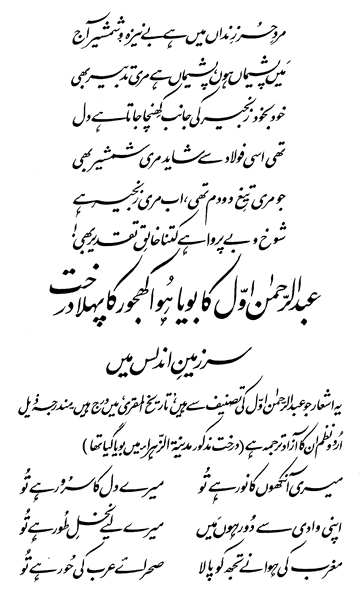 مردِ حُر زنداں میں ہے بے نیزہ و شمشیر آج
مَیں پشیماں ہوں، پشیماں ہے مری تدبیر بھی
خود بخود زنجیر کی جانب کھنچا جاتا ہے دل
تھی اسی فولاد سے شاید مری شمشیر بھی
جو مری تیغِ دو دم تھی، اب مری زنجیر ہے
شوخ و بے پروا ہے کتنا خالقِ تقدیر بھی!
عبدالرّحمٰن اوّل کا بویا ہُوا کھجور کا پہلا درخت
سرزمینِ اندلس میں
یہ اشعار جو عبدالرّحمٰن اوّل کی تصنیف سے ہیں، تاریخ المقری میں درج ہیں مندرجہ ذیل
اُردو نظم ان کا آزاد ترجمہ ہے (درخت مذکور مدینۃ الزّہرا میں بویا گیا تھا)
میری آنکھوں کا نور ہے تُو میرے دل کا سرُور ہے تُو
اپنی وادی سے دُور ہوں مَیں میرے لیے نخلِ طُور ہے تُو
مغرب کی ہوا نے تجھ کو پالا صحرائے عرب کی حُور ہے تُو